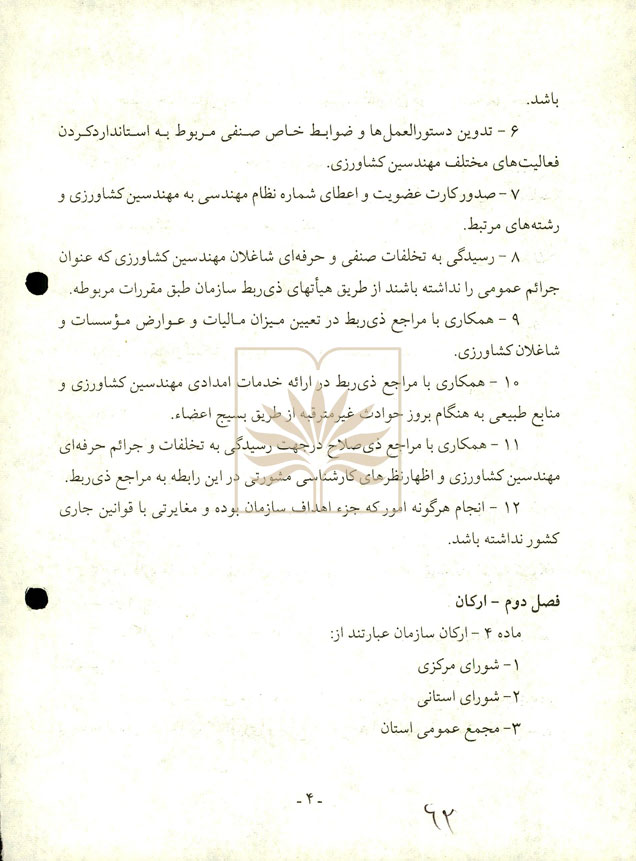 باشد.
۶ - تدوین دستورالعمل‌ها و ضوابط خاص صنفی مربوط به استانداردکردن
فعالیت‌های مختلف مهندسین کشاورزی.
۷ - صدور کارت عضویت و اعطای شماره نظام مهندسی به مهندسین کشاورزی و
رشته‌های مرتبط.
۸ - رسیدگی به تخلفات صنفی و حرفه‌ای شاغلان مهندسین کشاورزی که عنوان
جرائم عمومی را نداشته باشند از طریق هیأتهای ذی‌ربط سازمان طبق مقررات مربوطه.
۹ - همکاری با مراجع ذی‌ربط در تعیین میزان مالیات و عوارض مؤسسات و
شاغلان کشاورزی.
۱۰ - همکاری با مراجع ذی‌ربط در ارائه خدمات امدادی مهندسین کشاورزی و
منابع طبیعی به هنگام بروز حوادث غیرمترقبه از طریق بسیج اعضاء.
۱۱ - همکاری با مراجع ذی‌صلاح درجهت رسیدگی به تخلفات و جرائم حرفه‌ای
مهندسین کشاورزی و اظهارنظرهای کارشناسی مشورتی در این رابطه به مراجع ذی‌ربط.
۱۲ - انجام هرگونه امور که جزء اهداف سازمان بوده و مغایرتی با قوانین جاری
کشور نداشته باشد.
فصل دوم - ارکان
ماده ۴ - ارکان سازمان عبارتند از:
۱- شورای مرکزی
۲- شورای استانی
۳- مجمع عمومی استان
- ۴ -
۶۲